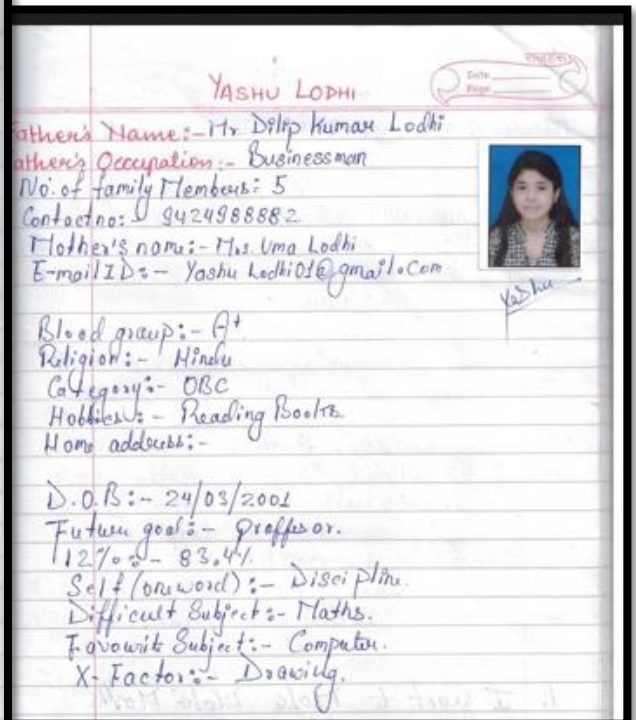 YASHU LODHI
Date
Page
Father's Name:- Mr Dilip Kumar Lodhi
Father's Occupation:- Businessman
No. of family Members:- 5
Contact no:- 9424988882
Mother's name:- Mrs Uma Lodhi
E-mail ID:- Yashu Lodhi01@gmail.Com
Yashu
Blood group:- A+
Religion:- Hindu
Category:- OBC
Hobbies:- Reading Books.
Home address:-
D.O.B:- 24/03/2001
Future goal:- proffesor.
12%:- 83.4%
Self (one word):- Discipline.
Difficult Subject:- Maths.
Favourite Subject:- Computer.
X-Factor:- Drawing.